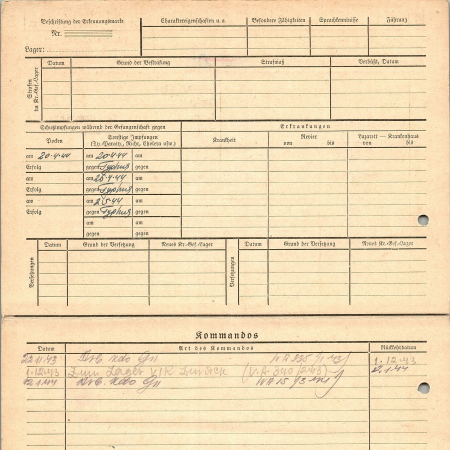 Beschriftung der Erkennungsmarke
Nr.
Lager:
Charaktereigenschaften u. a.
Besondere Fähigkeiten
Sprachkenntnisse
Führung
Strafen im Kr.-Gef.-Lager
Datum
Grund der Bestrafung
Strafmaß
Verbüßt, Datum
Schutzimpfungen während der Gefangenschaft gegen
Erkrankungen
Pocken
Sonstige Impfungen
(Ty. Paraty., Ruhr, Cholera usw.)
Krankheit
Revier
von bis
Lazarett — Krankenhaus
von bis
am 20.4.44 am 20.4.44 am
Erfolg gegen Typhus gegen
am am 28.4.44 am
Erfolg gegen Typhus gegen
am am 2.5.44 am
Erfolg gegen Typhus gegen
am am
gegen gegen
Versetzungen
Datum
Grund der Versetzung
Neues Kr.-Gef.-Lager
Versetzungen
Datum
Grund der Versetzung
Neues Kr.-Gef.-Lager
Kommandos
Datum
Art des Kommandos
Rückkehrdatum
22.11.43 Arb. Kdo 1.12.43
1.12.43 Zum Lager zurück
Arb. Kdo